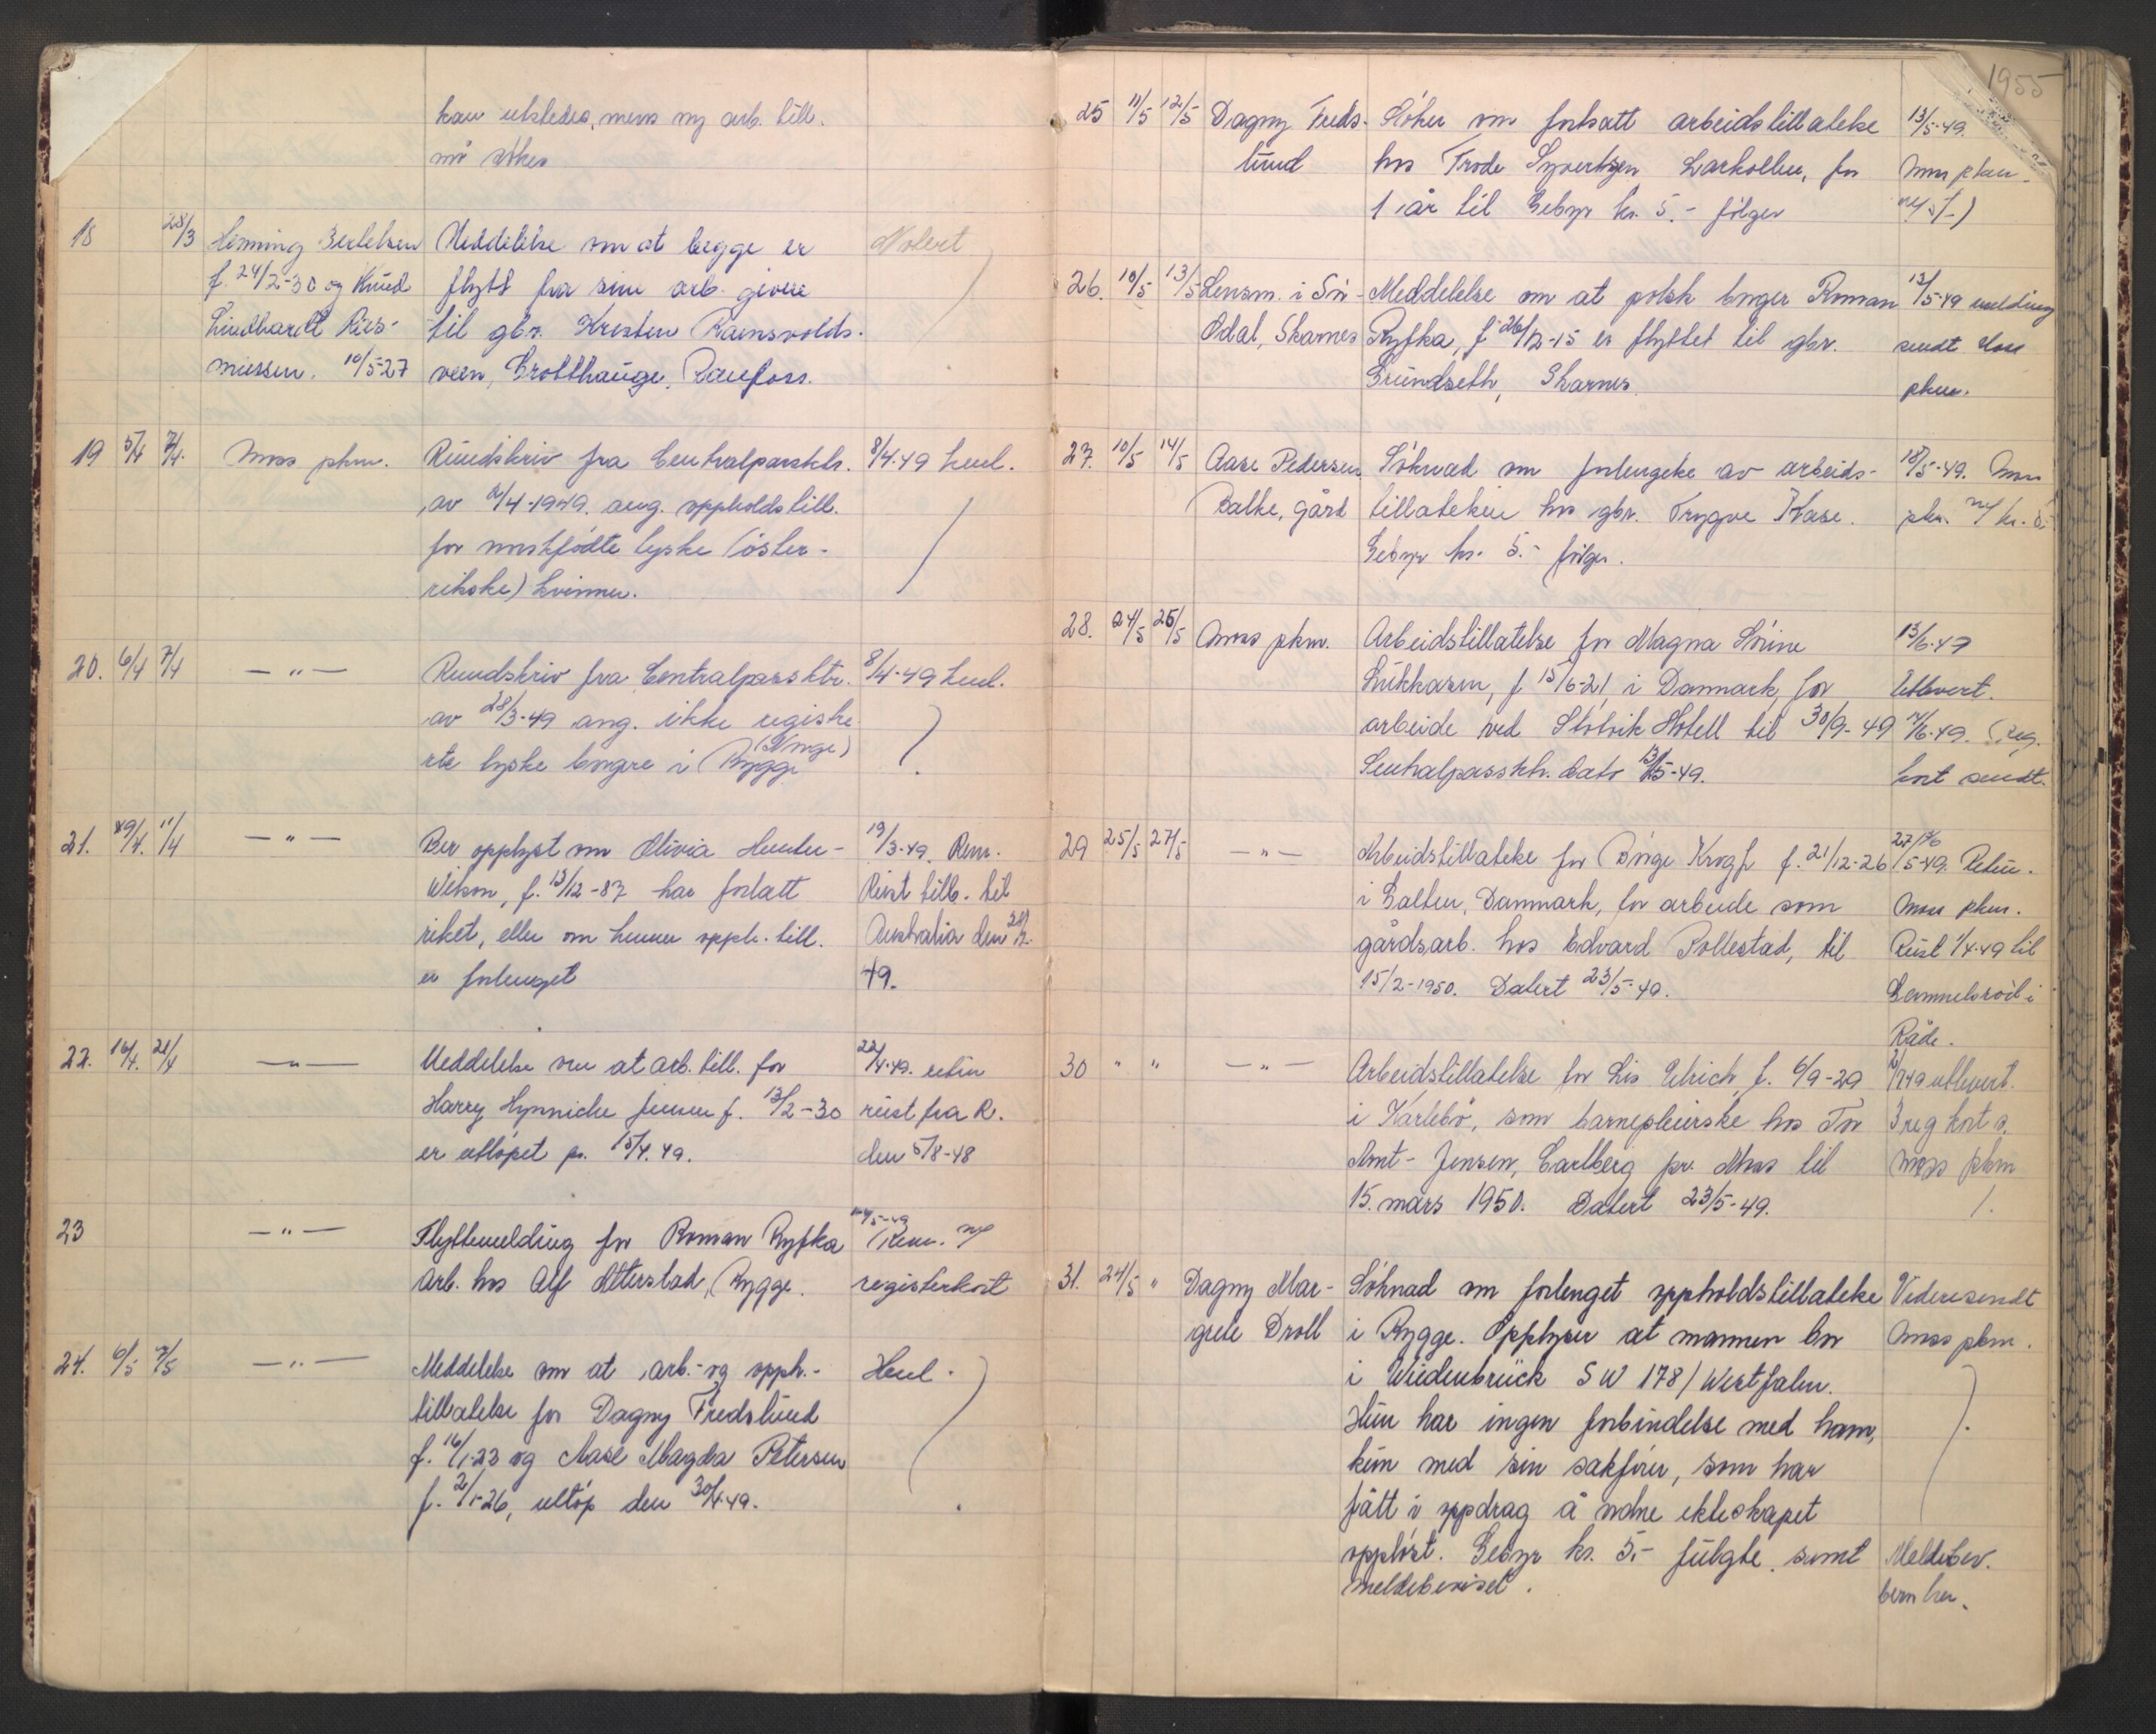 kan utstedes, mens ny arb. till.
må søkes
18 28/3 Henning Bertelsen Meddelelse om at begge er Notert
f. 24/2-30 og Knud flytt fra sine arb. givere
Lindhardt Ras- til gbr. Kristen Ramsvolds-
mussen. 10/5-27 veen, Grotthauge, Raufoss.
19 5/4 7/4. Moss pkm. Rundskriv fra Centralpassktr. 8/4-49 Henl.
av 2/4-1949. ang. oppholdstill.
for norskfødte tyske (øster-
rikske) kvinner.
20. 6/4 7/4 —"— Rundskriv fra Centralpassktr. 8/4-49 Henl.
av 28/3-49 ang. ikke registre-
(Norge)
rte tyske borgre i Rygge
21. 9/4. 11/4 —"— Ber opplyst om Olivia Hunter- 19/3-49. Rem.
Wilson, f. 13/12-87 har forlatt Reist tilb. til
riket, eller om hennes opph. till. Australia den
er forlenget 49.
22. 16/4. 21/4 —"— Meddelelse om at arb. till. for 22/4-49. retur
Harry Hynniche Jensen f. 13/2-30 reist fra R.
er utløpet pr. 15/4.49. den 5/8-48
23 —"— Flyttemelding for Roman Ryfka Rem. m/
Arb. hos Alf Atterstad, Rygge. registerkort
24. 6/5 7/5 —"— Meddelelse om at arb.- og opph.- Henl.
tillatelse for Dagny Fredslund
f. 16/1-23 og Aase Magda Petersen
f. 2/1-26, utløp den 30/4-49.
1955
25 11/5 12/5 Dagny Freds- Søker om fortsatt arbeidstillatelse 13/5-49.
lund hos Frode Syvertsen Larkollen, for Moss pkm.
1 år til Gebyr kr. 5.- følger m/ 5/-)
26. 10/5 13/5 Lensm. i Sør- Meddelelse om at polsk borger Roman 13/5-49 melding
Odal, Skarnes Ryfka, f 26/12-15 er flyttet til gbr. sendt Moss
Grundseth, Skarnes. pkm.
27. 10/5 14/5 Aase Pedersen Søknad om forlengelse av arbeids- 18/5-49. Moss
Balke, gård tillatelsen hos gbr. Trygve Kase. pkm. m/ kr. 5
Gebyr kr. 5.- følger.
28. 24/5 25/5 Moss pkm. Arbeidstillatelse for Magna Sørine 13/6-49
Lukkasen, f. 15/6-21 i Danmark, for Utlevert.
arbeide ved Støtvik Hotell til 30/9-49 14/6-49. Reg.
Sentralpassktr. dato 13/5-49. kort sendt.
29 25/5 27/5 —"— Arbeidstillatelse for Børge Krogh f. 21/12-26 27/5-49. Retur.
i Galten, Danmark, for arbeide som Moss pkm.
gårdsarb. hos Edvard Pollestad, til Reist 1/4-49 til
15/2-1950. Datert 23/5-49. Gammelsrød i
Råde.
30 " " —"— Arbeidstillatelse for Lis Ulrich, f. 6/9-29 utlevert.
i Karlebo, som barnepleierske hos Tor 3 reg kort s.
Amt-Jensen, Carlberg pr. Moss til Moss pkm
15. mars 1950. Datert 23/5-49.
31. 24/5 " Dagny Mar- Søknad om forlenget oppholdstillatelse Videresendt
grete Droll i Rygge. Opplyser at mannen bor Moss pkm.
i Wiedenbrück SW 178/ Westfalen.
Hun har ingen forbindelse med ham,
kun med sin sakfører, som har
fått i oppdrag å ordne ekteskapet
oppløst. Gebyr kr. 5,- fulgte samt Meldebev.
meldebeviset. bero her.